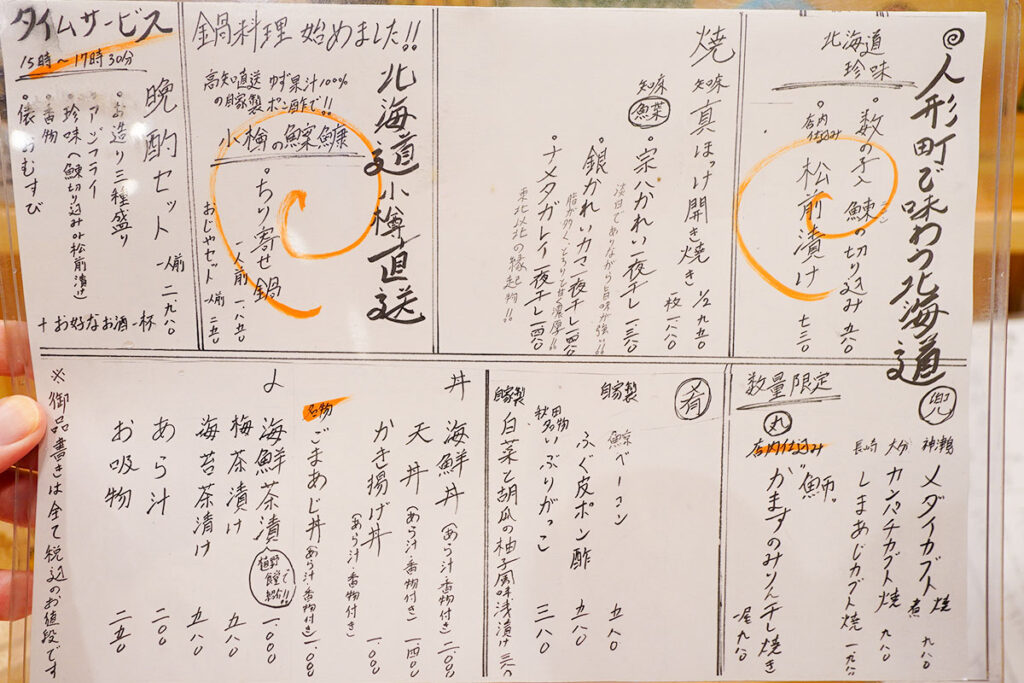 人形町で味わう北海道
北海道
珍味
・数の子入 鰊の切り込み 五八〇
・店内仕込み 松前漬け 七三〇
焼
知床 真ほっけ開き焼き 1/2 九五〇
一枚 一、八八〇
知床
・宗八かれい一夜干し 一、三八〇
淡白でありながら旨味が強い!!
・銀かれいカマ一夜干し 一、四八〇
・ナメタガレイ一夜干し 一、四八〇
東北以北の縁起物!!
北海道小樽直送
鍋料理 始めました!!
高知直送 ゆず果汁100%
の自家製 ポン酢で!!
小樽の
・ちり寄せ鍋
一人前 一、八五〇
おじやセット 一人前 二五〇
タイムサービス
15時〜17時30分
晩酌セット 一人前 二、九八〇
・お造り三種盛り
・アジフライ
・珍味へ鰊切り込みor松前漬け
・香物
・俵おむすび
+お好きなお酒一杯
兜
神瀬 メダイカブト 焼 煮 九八〇
大分 カンパチカブト焼 九八〇
長崎 しまあじカブト焼 一、九八〇
数量限定
丸
店内仕込み
かますのみりん干し焼き
一尾 九八〇
肴
鯨ベーコン 五八〇
自家製 ふぐ皮ポン酢 五八〇
秋田名物 いぶりがっこ 三八〇
自家製 白菜と胡瓜の柚子風味浅漬け 三八〇
丼
海鮮丼(あら汁・香物付き) 二、〇〇〇
天丼(あら汁・香物付き) 一、四〇〇
かき揚げ丼(あら汁・香物付き) 一、〇〇〇
名物 ごまあじ丼(あら汁・香物付き) 一、〇〇〇
〆
海鮮茶漬 一、〇〇〇
植野食堂で紹介!!
梅茶漬け 五八〇
海苔茶漬け 五八〇
あら汁 二〇〇
お吸物 二五〇
※御品書きは全て税込のお値段です